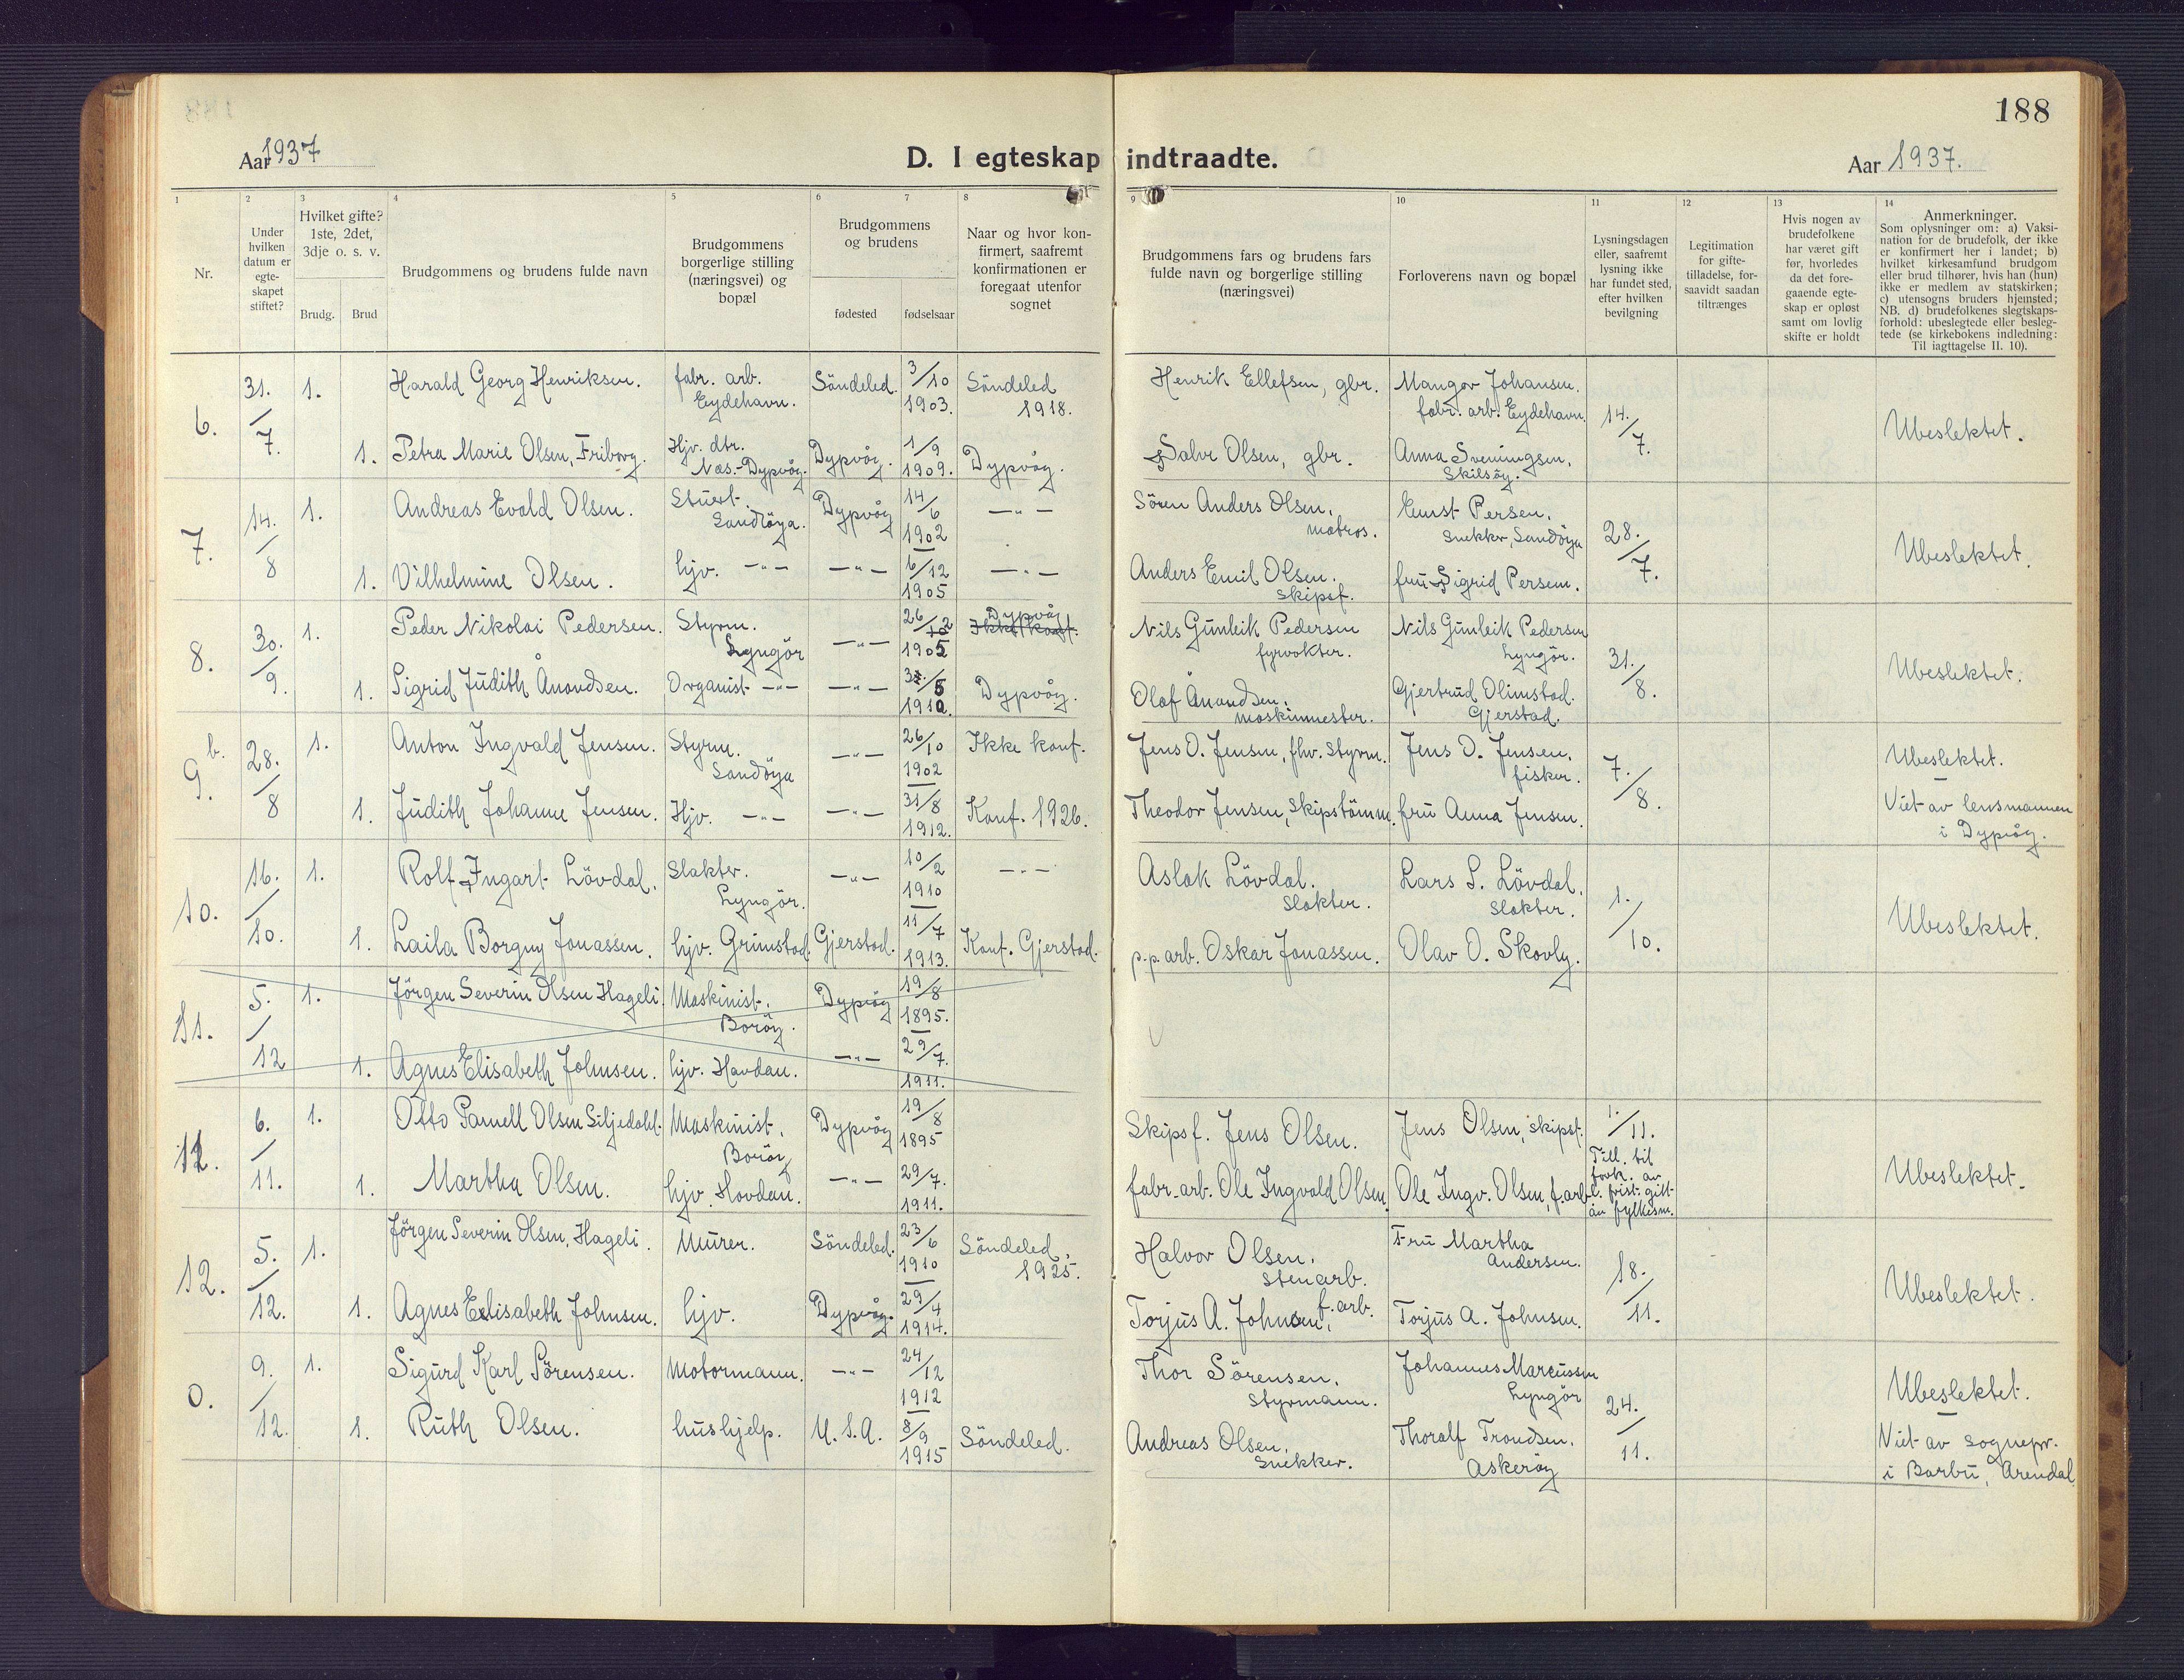 188
Aar 1937
D. I egteskap indtraadte.
Aar 1937.
1
2
3
4
5
6
7
8
9
10
11
12
13
14
Nr.
Under
hvilken
datum er
egte-
skapet
stiftet?
Hvilket gifte?
1ste, 2det,
3dje o. s. v.
Brudg.
Brud
Brudgommens og brudens fulde navn
Brudgommens
borgerlige stilling
(næringsvei) og
bopæl
Brudgommens
og brudens
fødested
fødselsaar
Naar og hvor kon-
firmert, saafremt
konfirmationen er
foregaat utenfor
sognet
Brudgommens fars og brudens fars
fulde navn og borgerlige stilling
(næringsvei)
Forloverens navn og bopæl
Lysningsdagen
eller, saafremt
lysning ikke
har fundet sted,
efter hvilken
bevilgning
Legitimation
for gifte-
tilladelse, for-
saavidt saadan
tiltrænges
Hvis nogen av
brudefolkene
har været gift
før, hvorledes
da det fore-
gaaende egte-
skap er opløst
samt om lovlig
skifte er holdt
Anmerkninger.
Som oplysninger om: a) Vaksi-
nation for de brudefolk, der ikke
er konfirmert her i landet; b)
hvilket kirkesamfund brudgom
eller brud tilhører, hvis han (hun)
ikke er medlem av statskirken;
c) utensogns bruders hjemsted;
NB. d) brudefolkenes slegtskaps-
forhold: ubeslegtede eller besleg-
tede (se kirkebokens indledning:
Til iagttagelse II. 10).
6.
31./7.
1.
Harald Georg Henriksen.
fabr. arb.
Eydehavn.
Söndeled.
3/10
1903.
Söndeled
1918.
Henrik Ellefsen, gbr.
Mangor Johansen.
fabr. arb. Eydehavn.
14./7.
Ubeslektet.
1.
Petra Marie Olsen, Friborg.
Hjv. dtr.
Næs.-Dypvåg.
Dypvåg.
1/9
1909.
Dypvåg.
Salve Olsen, gbr.
Anna Sveningsen,
Skilsöy.
7.
14./8
1.
Andreas Evald Olsen.
Stuert.
Sandöya.
Dypvåg
14/6
1902
—"—
Sören Anders Olsen,
matros.
Ernst Persen,
Snekker, Sandöya
28./7.
Ubeslektet.
1.
Vilhelmine Olsen.
hjv. —"—
—"—
6/12
1905
—"—
Anders Emil Olsen.
Skipsf.
fru Sigrid Persen.
8.
30./9.
1.
Peder Nikolai Pedersen.
Styrm.
Lyngör
—"—
26/2
1905
Dypvåg
Ikke konf.
Nils Gunleik Pedersen
fyrvokter.
Nils Gunleik Pedersen
Lyngör.
31./8.
Ubeslektet.
1.
Sigrid Judith Ånondsen.
Organist —"—
—"—
1910.
Dypvåg.
Olaf Ånondsen,
maskinmester.
Gjertrud Olimstad.
Gjerstad.
9b.
28./8
1.
Anton Ingvald Jensen.
Styrm.
Sandöya
—"—
26/10
1902
Ikke konf.
Jens O. Jensen, fhv. Styrm.
Jens O. Jensen,
fisker.
7./8.
Ubeslektet.
1.
Judith Johanne Jensen.
Hjv. —"—
—"—
31/8
1912.
Konf. 1926.
Theodor Jensen, Skipstömm.
fru Anna Jensen.
Viet av lensmannen
i Dypvåg.
10.
16./10.
1.
Rolf Ingart Lövdal.
Slakter.
Lyngör.
—"—
10/2
1910
—"—
Aslak Lövdal.
Slakter.
Lars S. Lövdal.
Slakter.
1./10.
Ubeslektet.
1.
Laila Borgny Jonassen.
hjv. Grimstad.
Gjerstad.
11/7
1913.
Konf. Gjerstad.
p.p. arb. Oskar Jonassen.
Olav O. Skovly.
11.
5./12
1.
Jörgen Severin Olsen Hageli.
Maskinist.
Boröy.
Dypvåg
19/8
1895.
1.
Agnes Elisabeth Johnsen.
hjv. Havdan.
—"—
29/7.
1911.
11.
6./11.
1.
Otto Parnell Olsen Siljedahl.
Maskinist,
Boröy
Dypvåg
19/8
1895
Skipsf. Jens Olsen.
Jens Olsen, skipsf.
1./11.
Till. til
fork. av
l. frist. gitt
av fylkesm.
Ubeslektet.
1.
Martha Olsen.
hjv. Hovdan.
—"—
29/7.
1911.
fabr. arb. Ole Ingvald Olsen.
Ole Ingv. Olsen, f.arb.
12.
5./12.
1.
Jörgen Severin Olsen, Hageli.
Murer.
Söndeled.
23/6
1910
Söndeled,
1925.
Halvor Olsen,
Stenarb.
Fru Martha
Andersen.
18./11.
Ubeslektet.
1.
Agnes Elisabeth Johnsen.
hjv.
Dypvåg.
29/4
1914.
Torjus A. Johnsen, f. arb.
Torjus A. Johnsen.
0.
9./12.
1.
Sigurd Karl Sörensen.
Motormann.
—"—
24/12
1912
Thor Sörensen,
Styrmann.
Johannes Marcussen
Lyngör
24./11.
Ubeslektet.
1.
Ruth Olsen.
hushjelp.
U. S. A.
8/9
1915
Söndeled.
Andreas Olsen,
Snekker.
Thoralf Trondsen,
Askeröy
Viet av sognepr.
i Barbu, Arendal